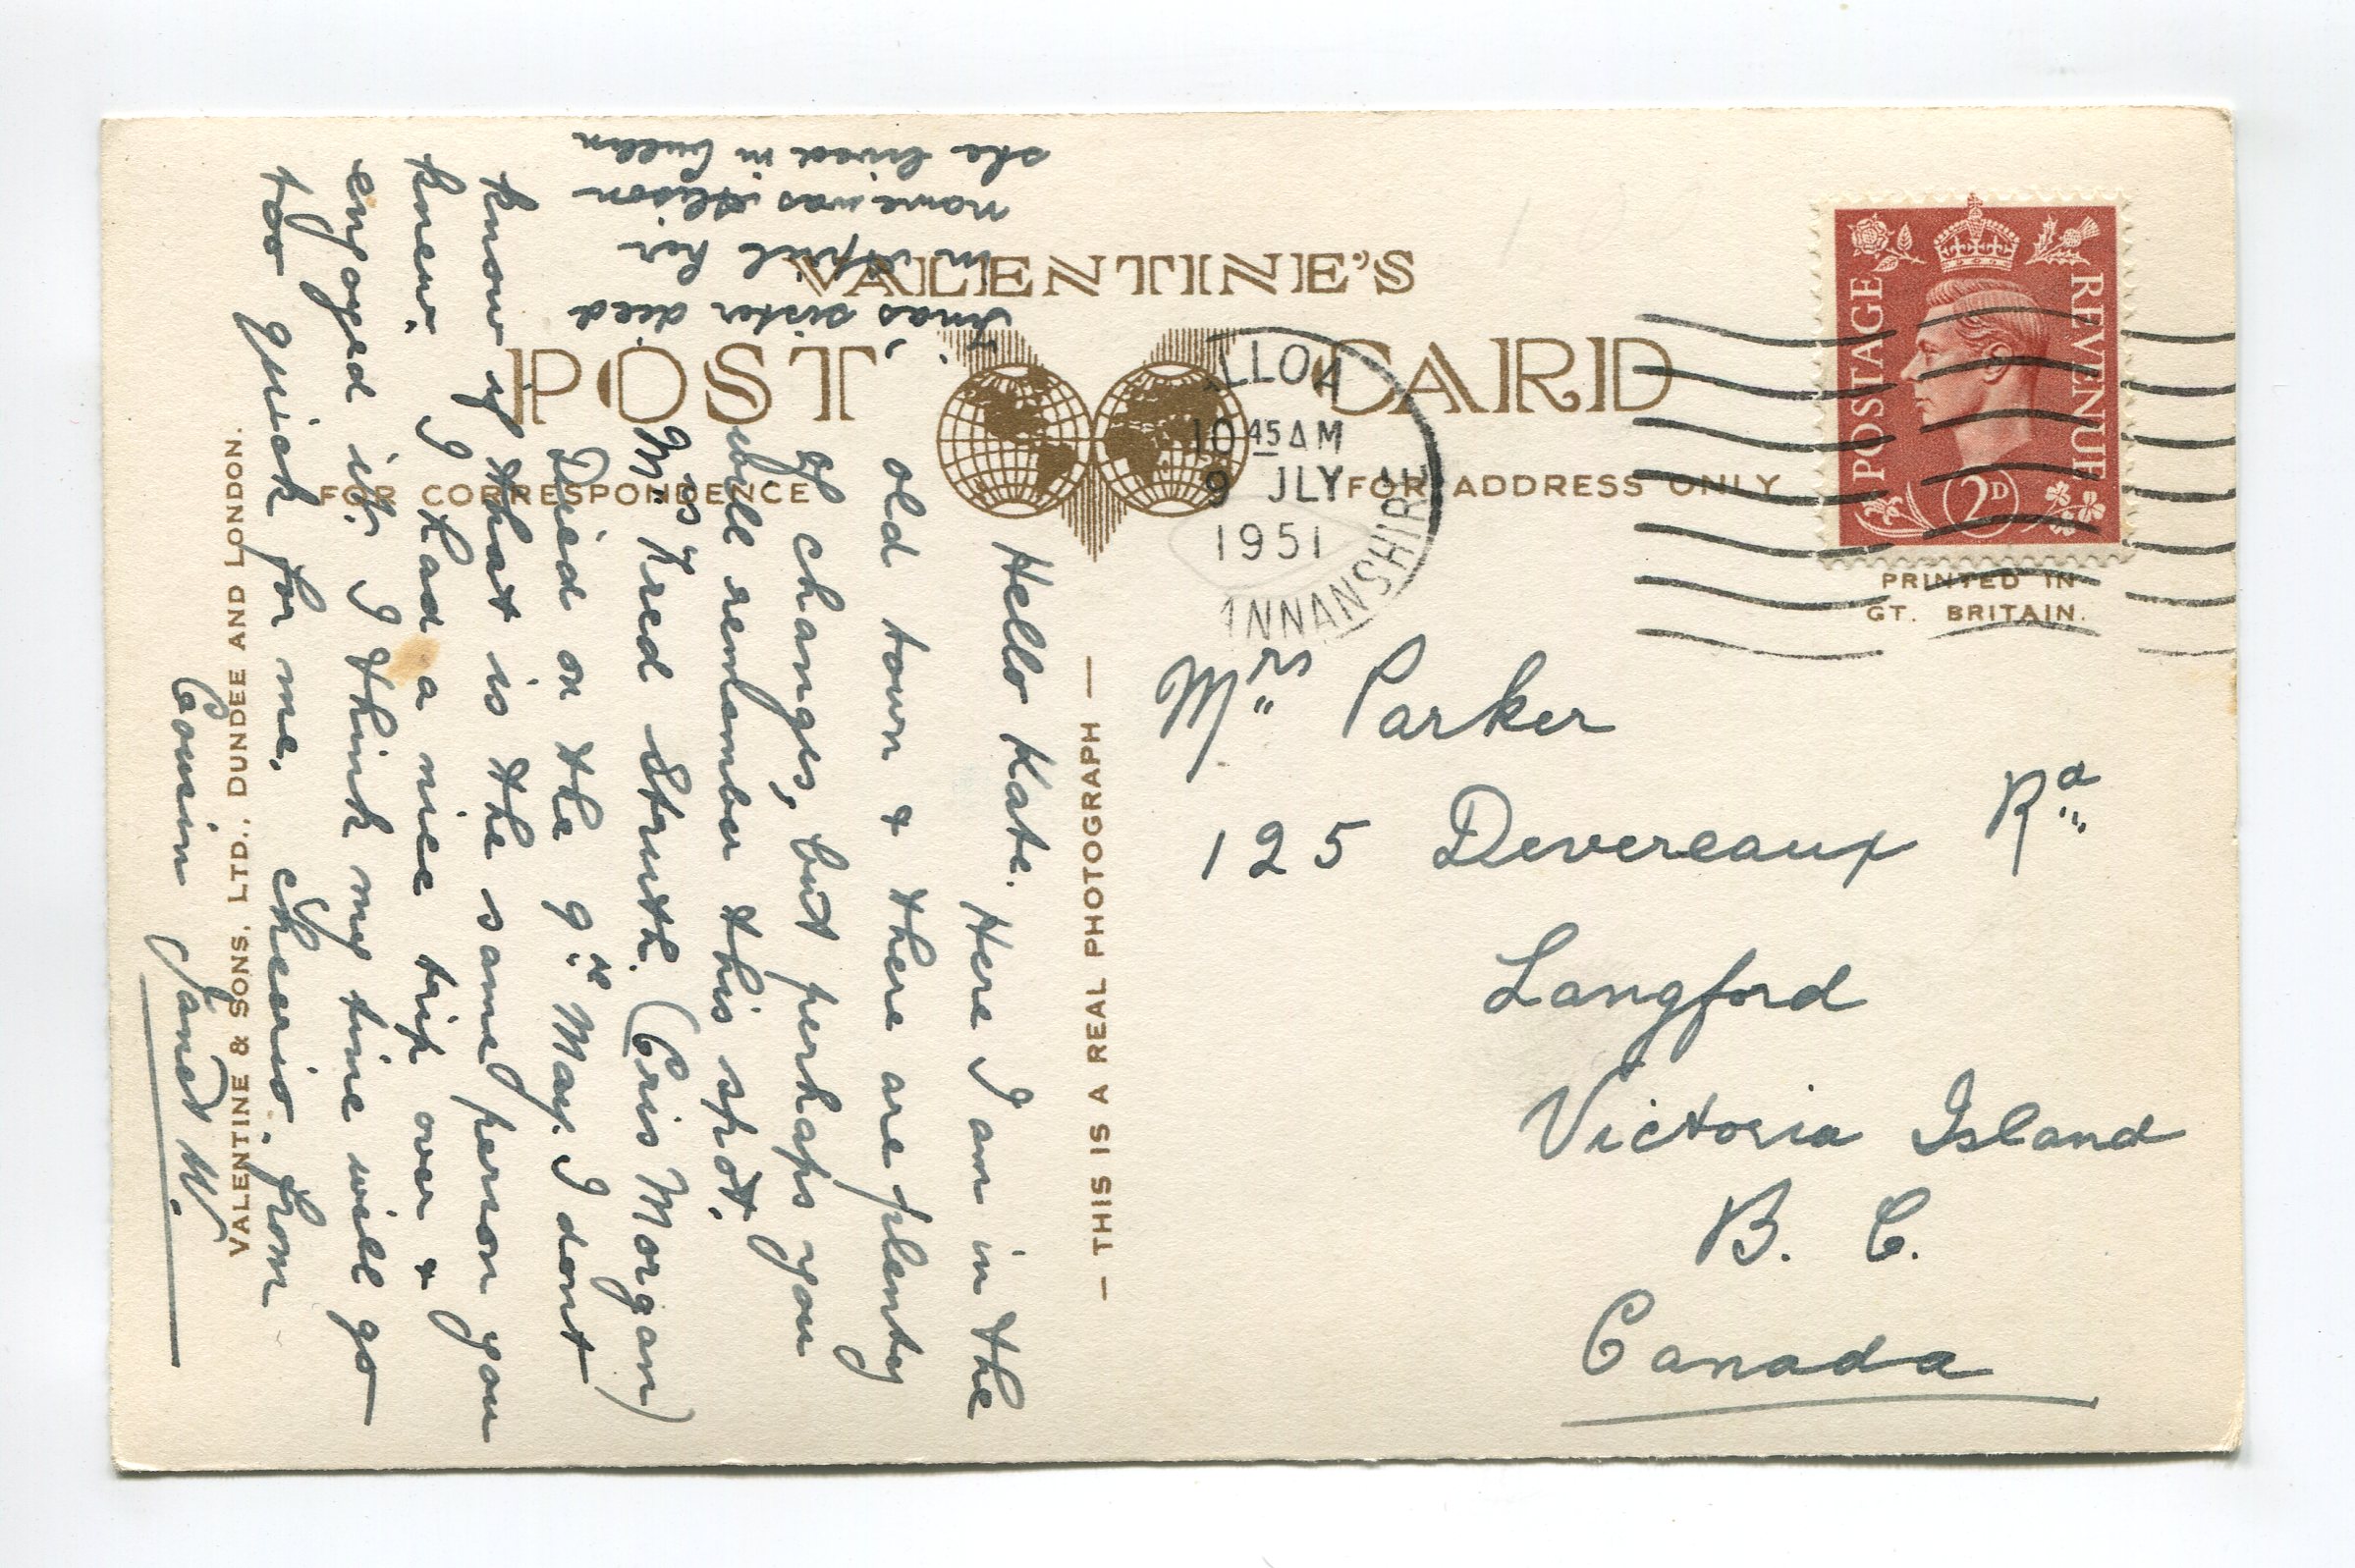 VALENTINE'S
POST CARD
FOR CORRESPONDENCE
FOR ADDRESS ONLY
LLOA
10 45 AM
9 JLY
1951
NNANSHIR
POSTAGE
REVENUE
2D
PRINTED IN
GT. BRITAIN.
Hello Kate. Here I am in the
old town & there are plenty
of changes, but perhaps you
will remember this spot.
Mrs Fred Struth. (Cris Morgan)
Died on the 9th May. I dont
know if that is the same person you
knew. I had a nice trip over &
enjoyed it. I think my time will go
too quick for me. Cheerio. from
Cousin Janet W.
sister died
in April her
name was Alison
she lived in
— THIS IS A REAL PHOTOGRAPH —
VALENTINE & SONS, LTD., DUNDEE AND LONDON.
Mrs Parker
125 Devereaux Rd
Langford
Victoria Island
B. C.
Canada